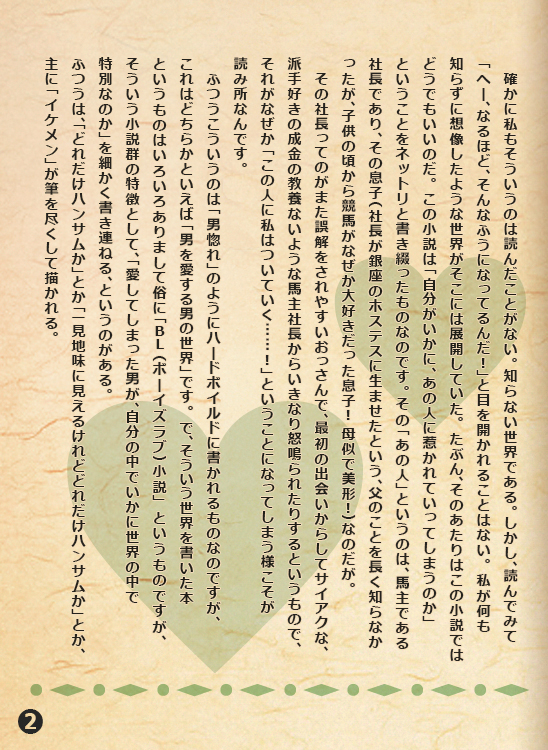 確かに私もそういうのは読んだことがない。知らない世界である。しかし、読んでみて
「へー、なるほど、そんなふうになってるんだ！」と目を開かれることはない。私が何も
知らずに想像したような世界がそこには展開していた。たぶん、そのあたりはこの小説では
どうでもいいのだ。この小説は「自分がいかに、あの人に惹かれていってしまうのか」
ということをネットリと書き綴ったものなのです。その「あの人」というのは、馬主である
社長であり、その息子（社長が銀座のホステスに生ませたという、父のことを長く知らなか
ったが、子供の頃から競馬がなぜか大好きだった息子！母似で美形！）なのだが。
その社長ってのがまた誤解をされやすいおっさんで、最初の出会いからしてサイアクな、
派手好きの成金の教養ないような馬主社長からいきなり怒鳴られたりするというもので、
それがなぜか「この人に私はついていく……！」ということになってしまう様こそが
読み所なんです。
ふつうこういうのは「男惚れ」のようにハードボイルドに書かれるものなのですが、
これはどちらかといえば「男を愛する男の世界」です。で、そういう世界を書いた本
というものはいろいろありまして俗に「BL（ボーイズラブ）小説」というものですが、
そういう小説群の特徴として、「愛してしまった男が、自分の中でいかに世界の中で
特別なのか」を細かく書き連ねる、というのがある。
ふつうは、「どれだけハンサムか」とか「一見地味に見えるけれどどれだけハンサムか」とか、
主に「イケメン」が筆を尽くして描かれる。
2